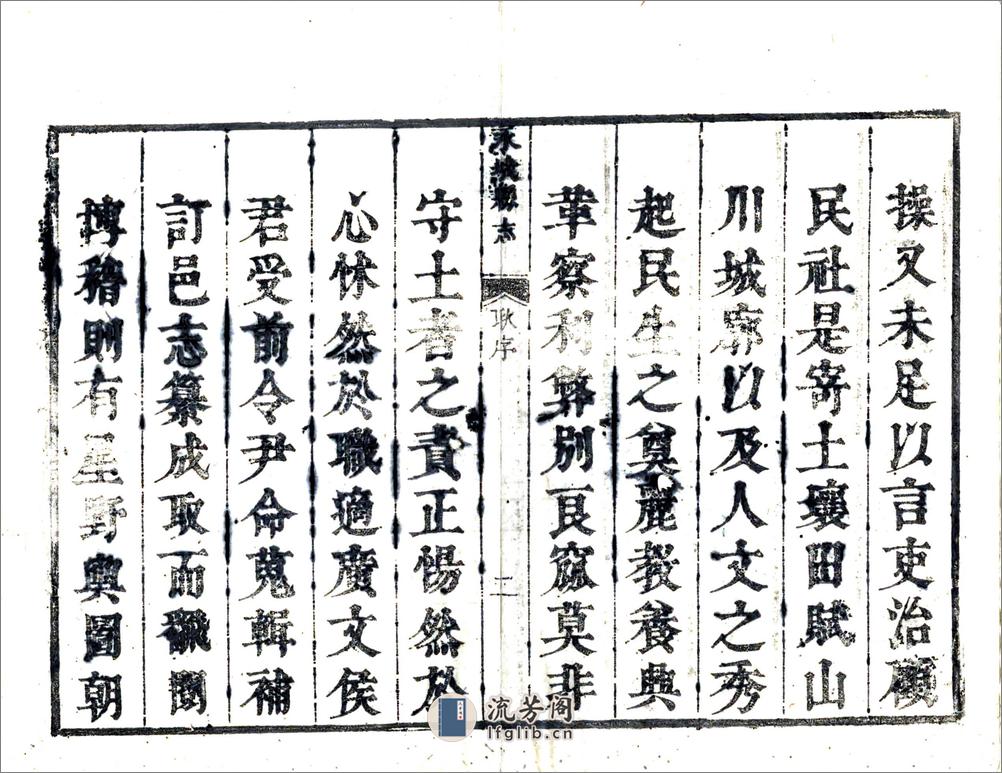 操又未足以言吏治顧
民社是寄土壤田賦山
川城廓以及人文之秀
起民生之奠麗教養興
革察利弊別良窳莫非
永城縣志
耿序
二
守土者之責正惕然於
心怵然於職適廣文侯
君受前令尹命蒐輯補
訂邑志纂成取而翻閱
博稽則有星野輿圖朝
流芳阁
lfglib.cn